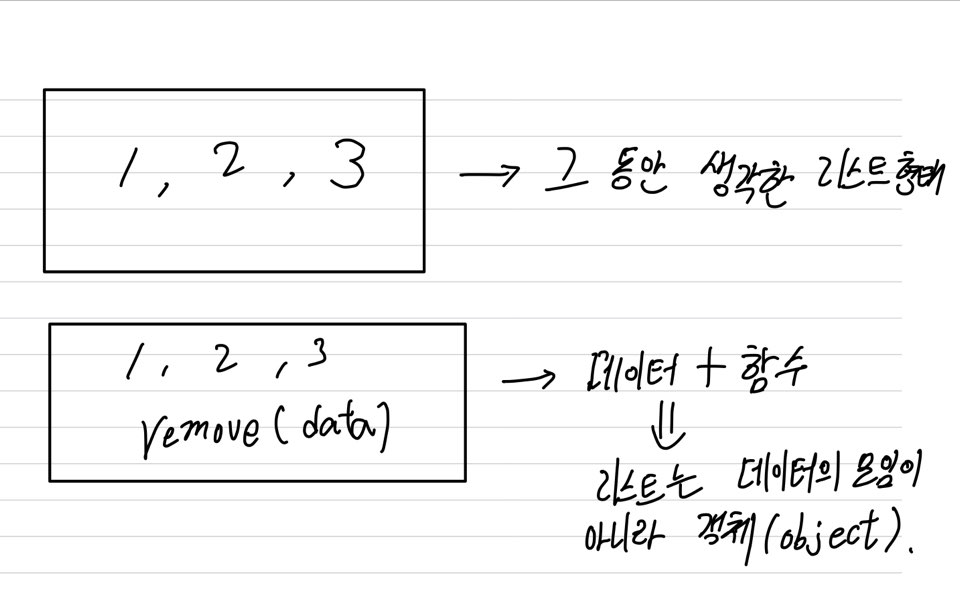 1, 2, 3 → 그 동안 생각한 리스트 형태
1, 2, 3 → 데이터 + 함수
remove(data)
⇓
리스트는 데이터의 모임이
아니라 객체(object).